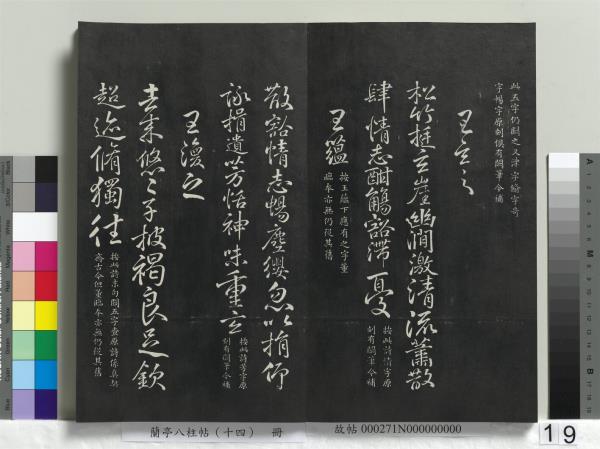 此五字仍闕之又津字絲字奇
字暢字原刻俱有闕筆今補
王玄之
松竹挺崖幽澗激清流蕭散
肆情志酣觴豁滯憂
按此詩情字原
刻有闕筆今補
王蘊
按王蘊下應有之字董
臨本亦無仍從其舊
散豁情志暢塵纓忽以捐仰
詠挹遺芳怡神味重玄
按此詩芳字原
刻有闕筆今補
王渙之
去來悠〻子披褐良足欽
超迹脩獨往
按此詩末句闕五字查原詩係真契
齊古今但董臨本亦無仍從其舊
蘭亭八柱帖(十四) 冊
故帖 000271N000000000
19